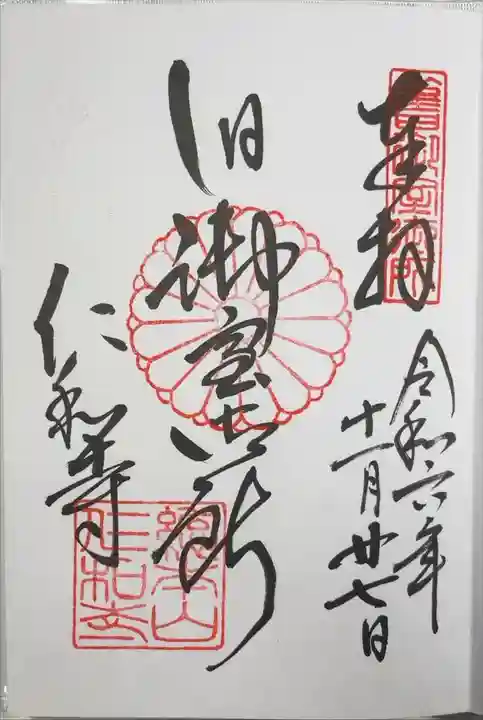 奉拝
令和六年
十一月廿七日
旧御室御所
仁和寺
総本山
仁和寺